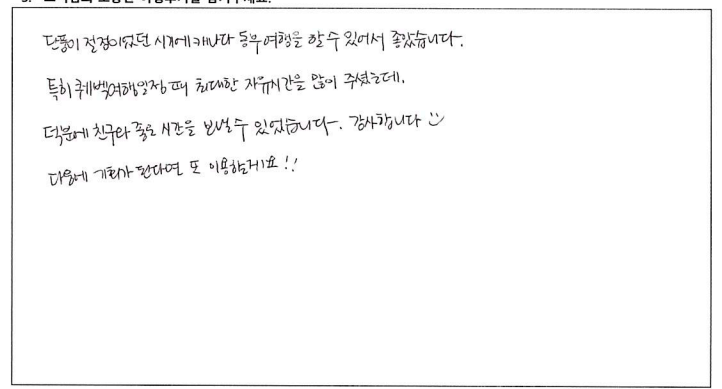 단풍이 절정이었던 시기에 캐나다 동부여행을 할 수 있어서 좋았습니다.
특히 퀘벡여행일정 때 최대한 자유시간을 많이 주셨는데,
덕분에 친구와 좋은 시간을 보낼 수 있었습니다. 감사합니다
다음에 기회가 된다면 또 이용할게요!!